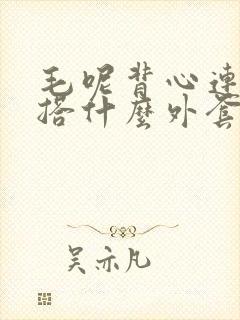 毛呢背心連
搭什麼外套
吴亦凡